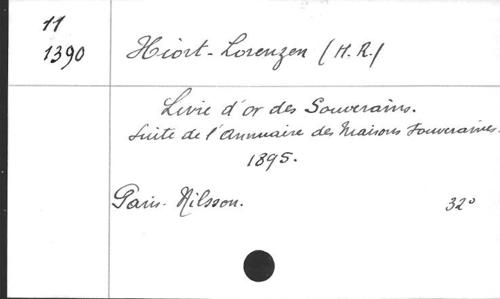 11
1390
Hiort-Lorenzen (H.R./
Livre d'or des Souverains.
Suite de l'Annuaire des Maisons Souveraines.
1895.
Paris. Nilsson.
32°